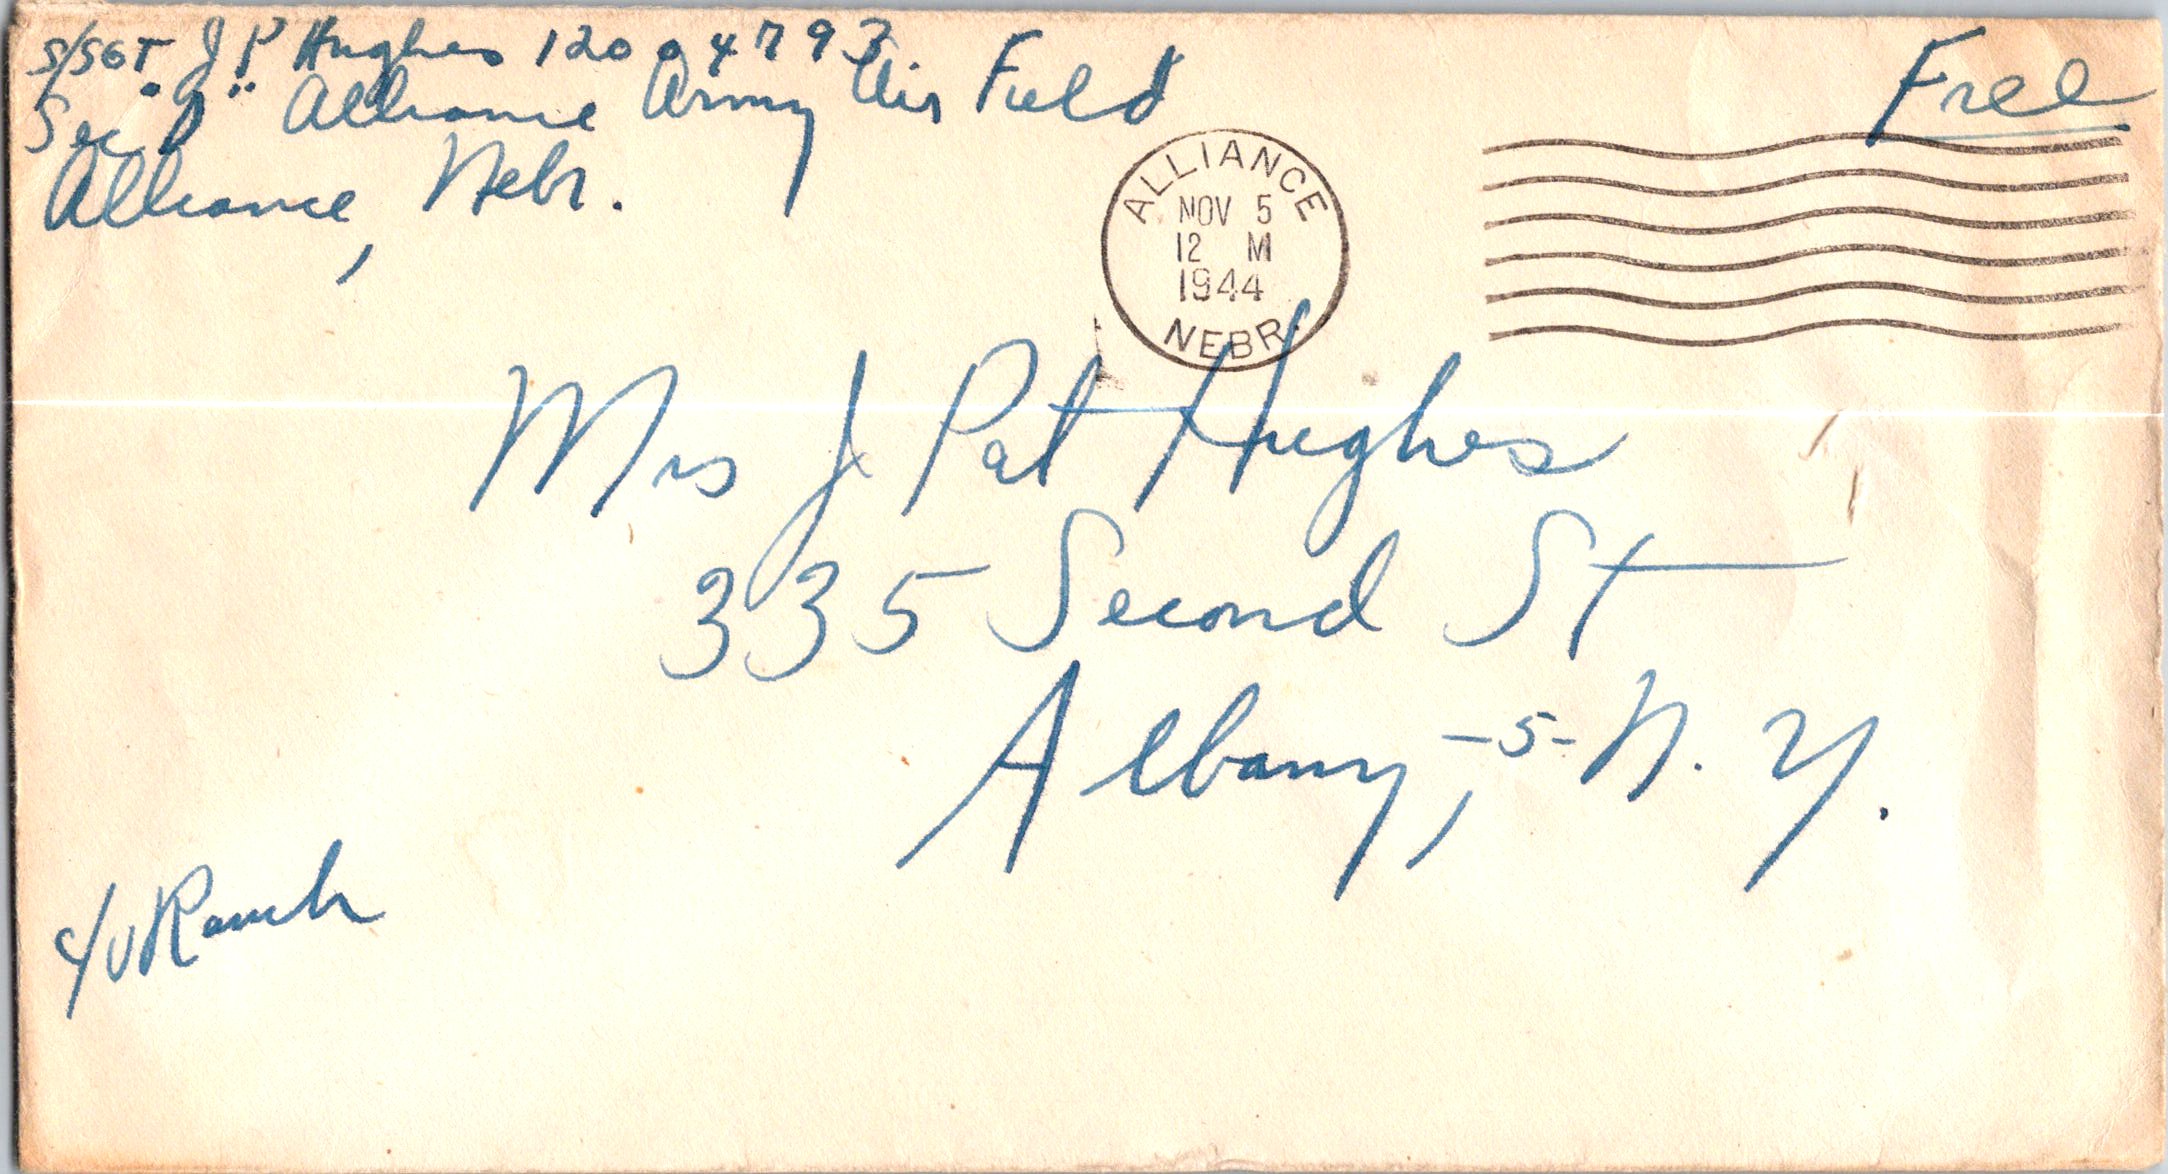 S/SGT J P Hughes 12004793
Sec "J" Alliance Army Air Field
Alliance, Nebr.
Free
ALLIANCE
NOV 5
12 M
1944
NEBR.
Mrs J Pat Hughes
335 Second St
Albany, -5- N. Y.
c/o Rauch